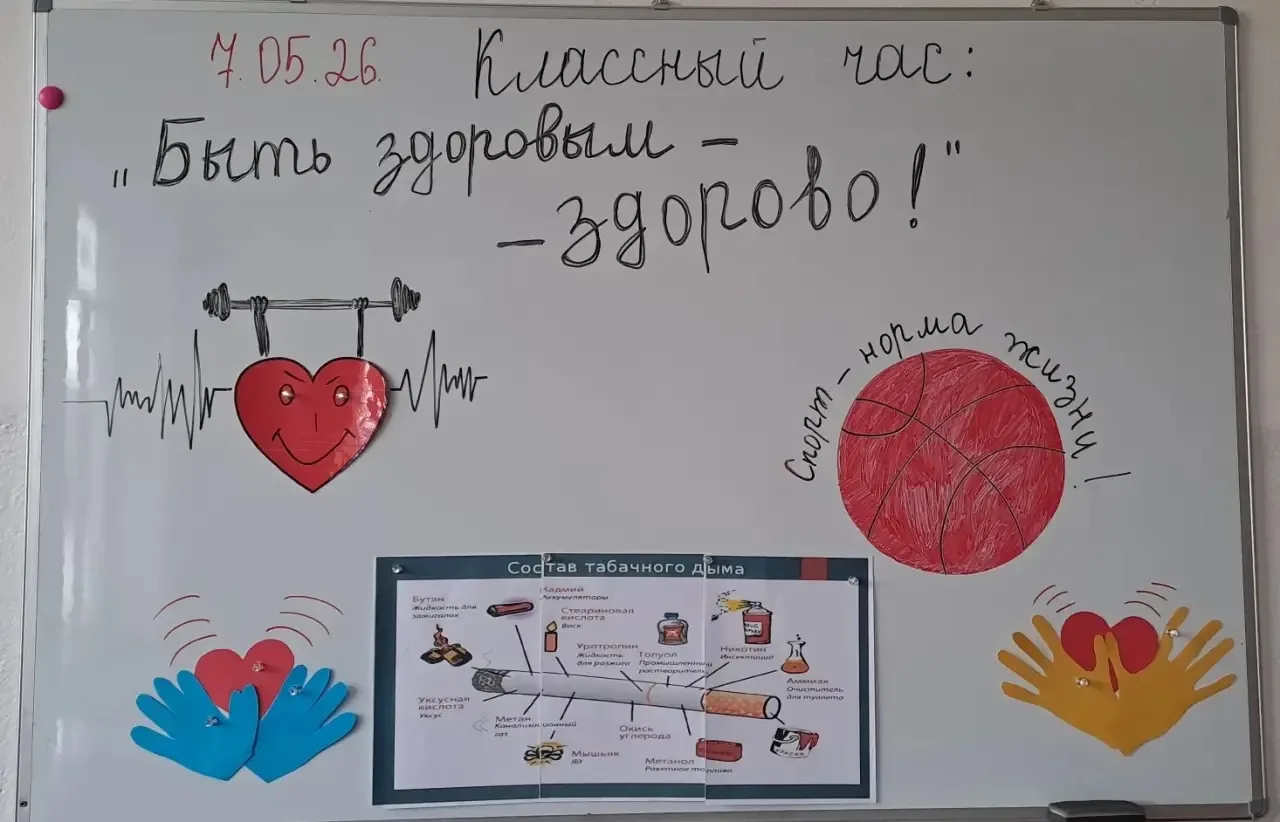 7.05.26. Классный час:
„Быть здоровым –
– здорово!"
Спорт – норма жизни!
Состав табачного дыма
Бутан
Жидкость для
зажигалок
Кадмий
Аккумуляторы
Стеариновая
кислота
Воск
Уротропин
Жидкость
для розжига
Толуол
Промышленный
растворитель
Никотин
Инсектицид
Аммиак
Очиститель
для туалета
Уксусная
кислота
Уксус
Метан
Канализационный
газ
Мышьяк
Яд
Окись
углерода
Метанол
Ракетное топливо